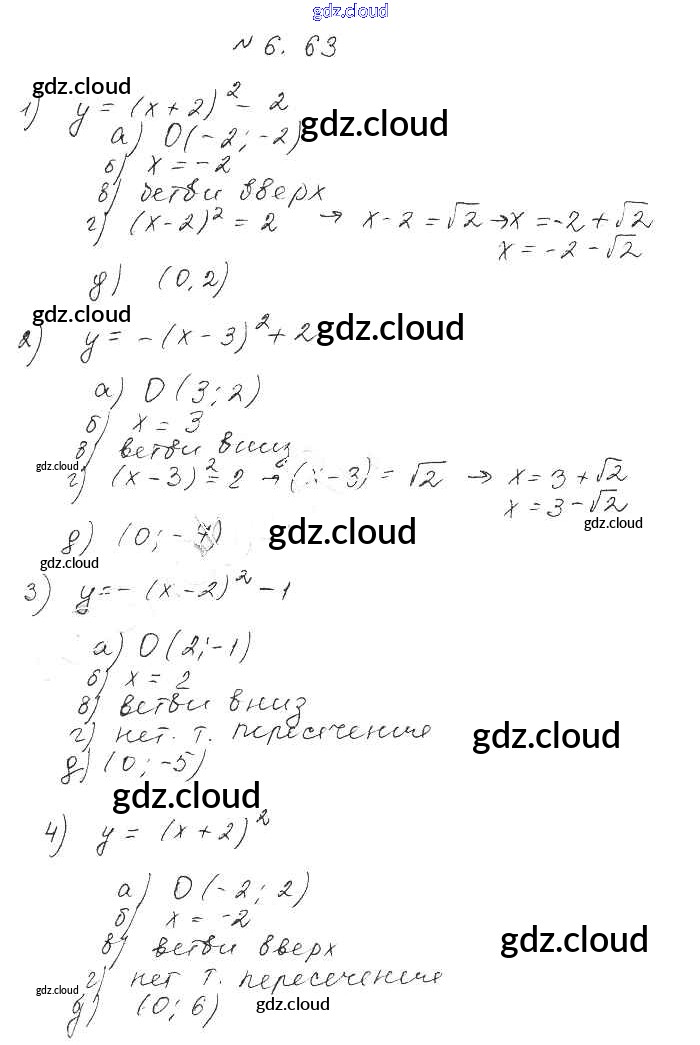 gdz.cloud
N 6. 63
gdz.cloud
1) y = (x + 2)² - 2
a) O(-2; -2) gdz.cloud
б) x = -2
в) ветви вверх
г) (x-2)² = 2 → x - 2 = √2 → x = -2 + √2
x = -2 - √2
д) (0, 2)
gdz.cloud
2) y = -(x - 3)² + 2 gdz.cloud
a) O (3; 2)
б) x = 3
в) ветви вниз
gdz.cloud г) (x - 3)² = 2 → (x - 3) = √2 → x = 3 + √2
x = 3 - √2
gdz.cloud
д) (0; -7) gdz.cloud
gdz.cloud
3) y = -(x - 2)² - 1
a) O(2; -1)
б) x = 2
в) ветви вниз
г) нет. т. пересечения gdz.cloud
д) (0; -5)
gdz.cloud
4) y = (x + 2)²
a) O(-2; 2)
б) x = -2
в) ветви вверх gdz.cloud
г) нет т. пересечения
gdz.cloud д) (0; 6) gdz.cloud